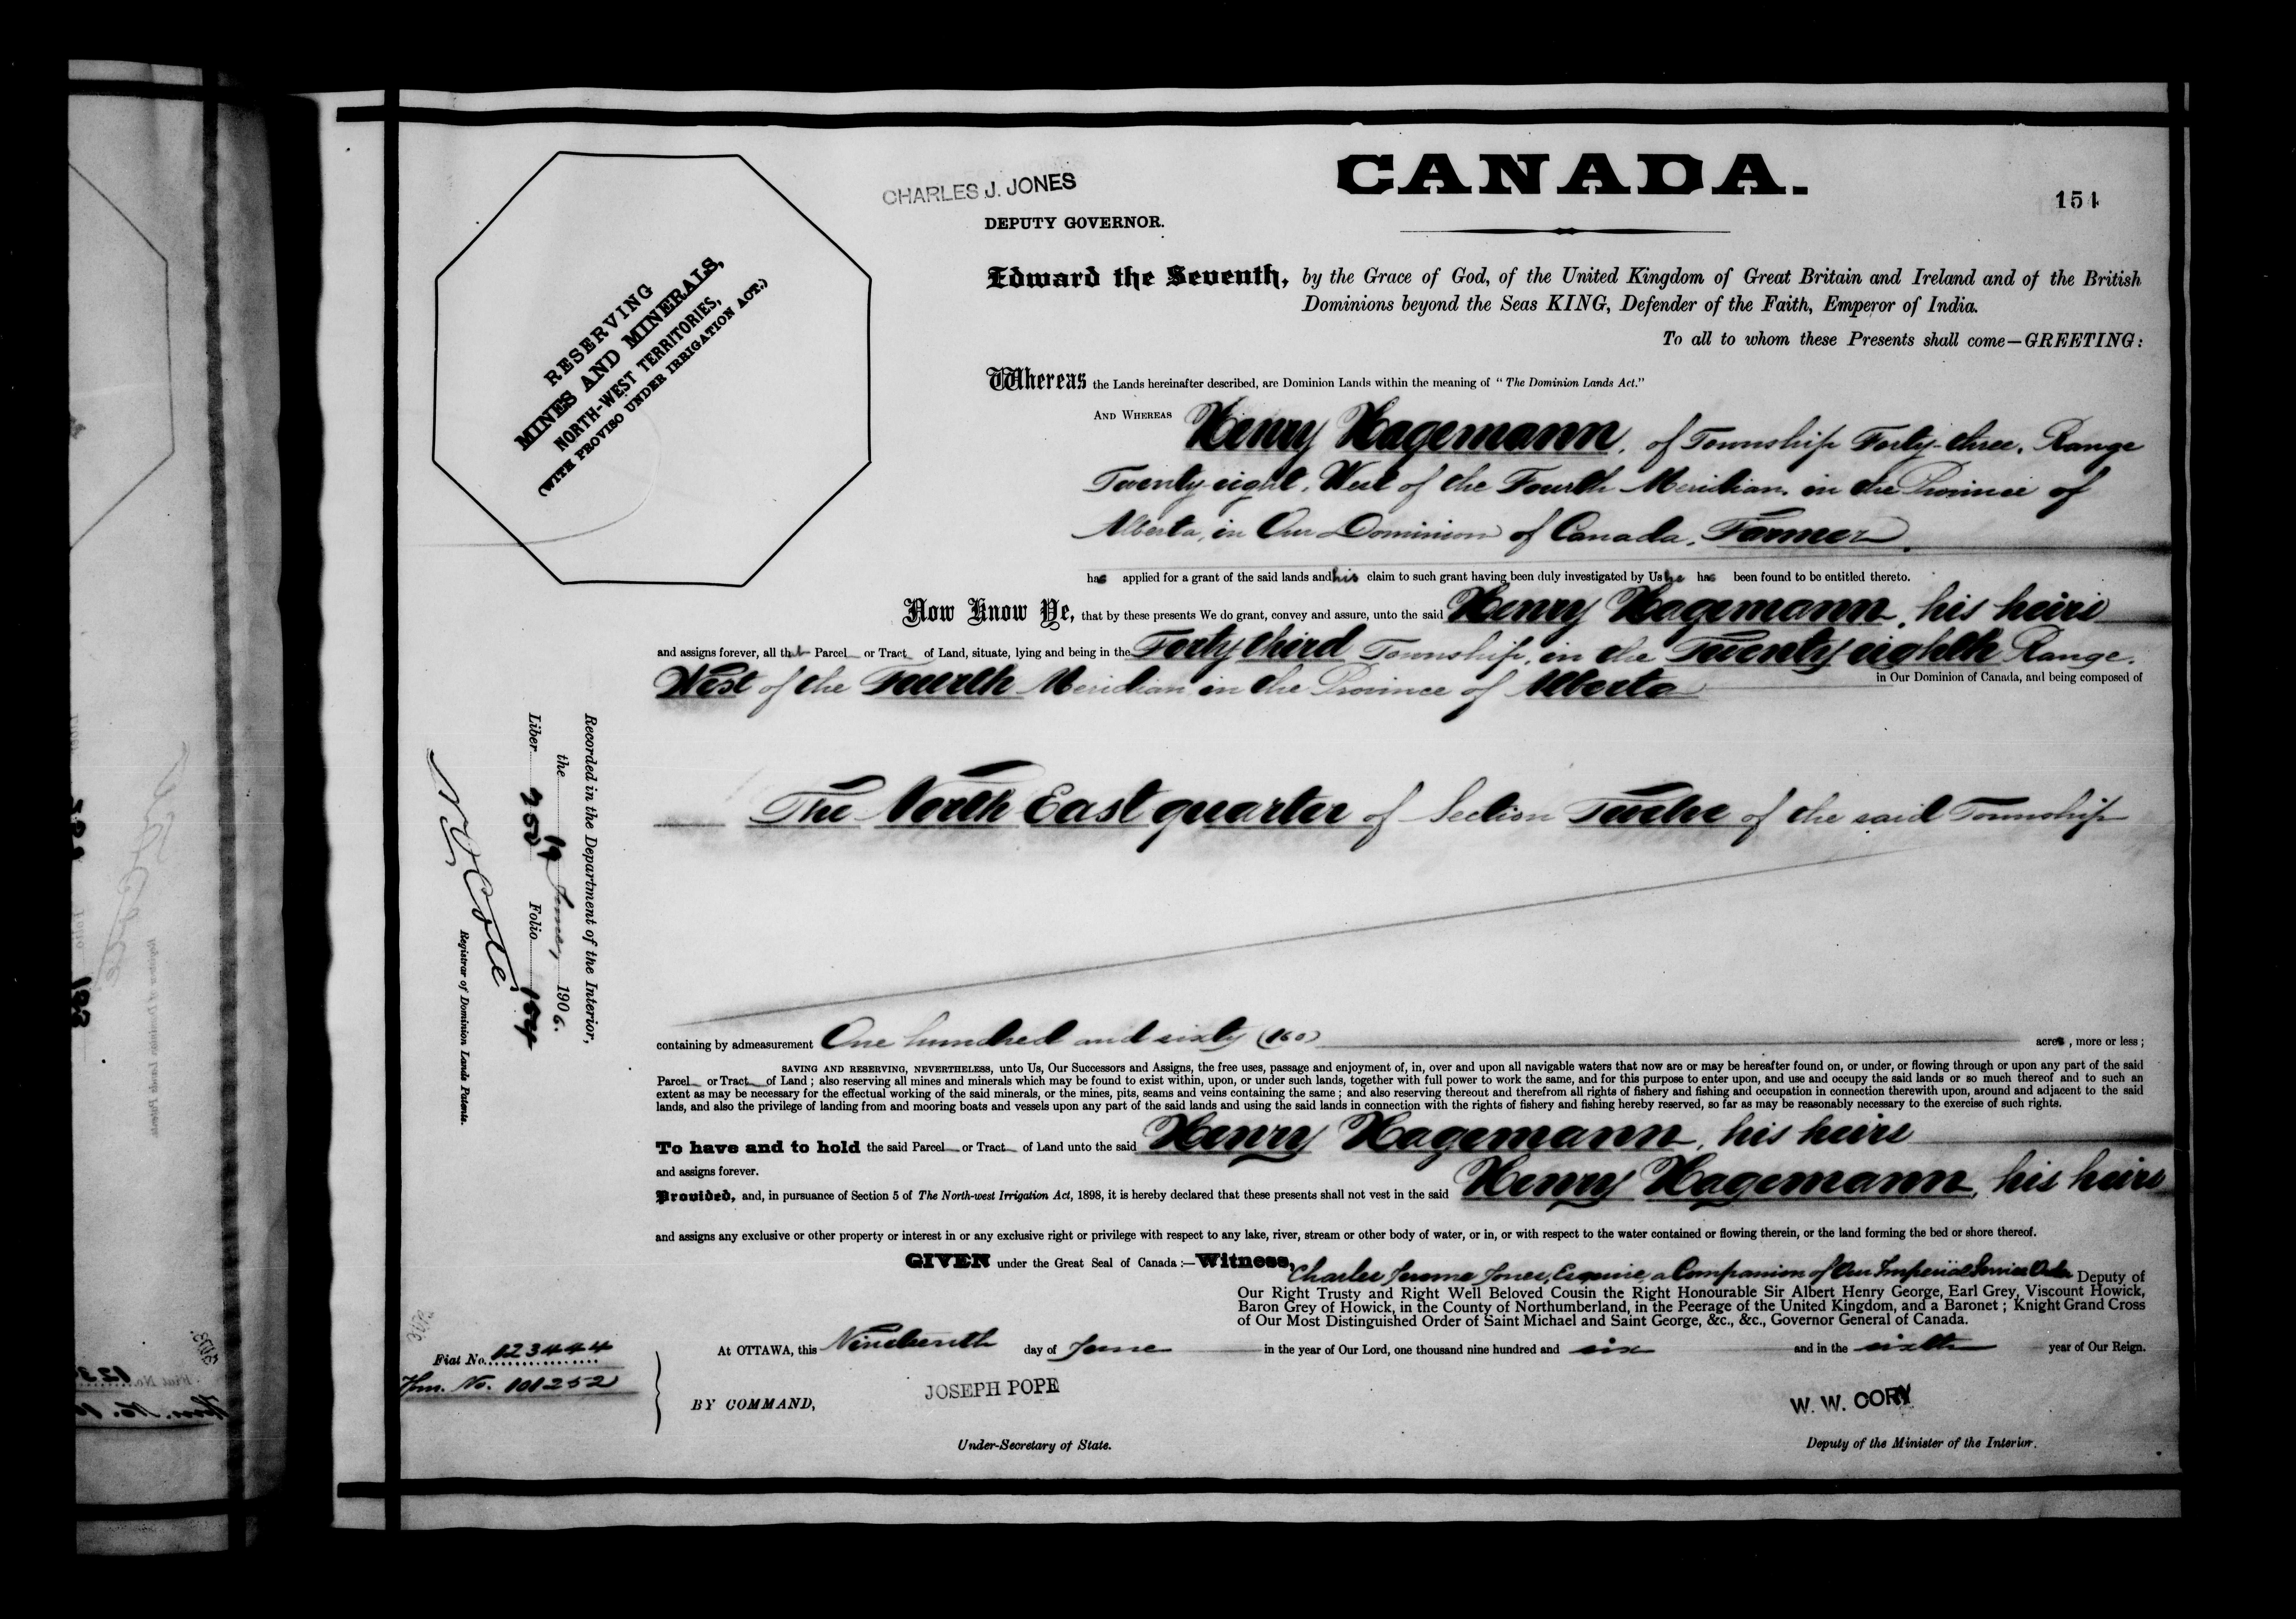 CANADA.
CHARLES J. JONES
154
DEPUTY GOVERNOR.
RESERVING
MINES AND MINERALS,
NORTH-WEST TERRITORIES,
(WITH PROVISO UNDER IRRIGATION ACT.)
Edward the Seventh, by the Grace of God, of the United Kingdom of Great Britain and Ireland and of the British
Dominions beyond the Seas KING, Defender of the Faith, Emperor of India.
To all to whom these Presents shall come—GREETING:
Whereas the Lands hereinafter described, are Dominion Lands within the meaning of "The Dominion Lands Act."
AND WHEREAS Henry Hagemann, of Township Forty-three, Range
Twenty-eight, West of the Fourth Meridian, in the Province of
Alberta, in Our Dominion of Canada, Farmer,
has applied for a grant of the said lands and his claim to such grant having been duly investigated by Us he has been found to be entitled thereto.
Now Know Ye, that by these presents We do grant, convey and assure, unto the said Henry Hagemann, his heirs
and assigns forever, all that Parcel or Tract of Land, situate, lying and being in the Forty third Township, in the Twenty eighth Range,
West of the Fourth Meridian in the Province of Alberta in Our Dominion of Canada, and being composed of
The North East quarter of Section Twelve of the said Township
Recorded in the Department of the Interior,
the 19 June, 1906.
Liber 252 Folio 154
N O Coté
Registrar of Dominion Lands Patents.
containing by admeasurement One hundred and sixty (160) acres, more or less;
SAVING AND RESERVING, NEVERTHELESS, unto Us, Our Successors and Assigns, the free uses, passage and enjoyment of, in, over and upon all navigable waters that now are or may be hereafter found on, or under, or flowing through or upon any part of the said
Parcel or Tract of Land; also reserving all mines and minerals which may be found to exist within, upon, or under such lands, together with full power to work the same, and for this purpose to enter upon, and use and occupy the said lands or so much thereof and to such an
extent as may be necessary for the effectual working of the said minerals, or the mines, pits, seams and veins containing the same; and also reserving thereout and therefrom all rights of fishery and fishing and occupation in connection therewith upon, around and adjacent to the said
lands, and also the privilege of landing from and mooring boats and vessels upon any part of the said lands and using the said lands in connection with the rights of fishery and fishing hereby reserved, so far as may be reasonably necessary to the exercise of such rights.
To have and to hold the said Parcel or Tract of Land unto the said Henry Hagemann, his heirs
and assigns forever.
Provided, and, in pursuance of Section 5 of The North-west Irrigation Act, 1898, it is hereby declared that these presents shall not vest in the said Henry Hagemann, his heirs
and assigns any exclusive or other property or interest in or any exclusive right or privilege with respect to any lake, river, stream or other body of water, or in, or with respect to the water contained or flowing therein, or the land forming the bed or shore thereof.
GIVEN under the Great Seal of Canada:—Witness, Charles Jerome Jones, Esquire, a Companion of Our Imperial Service Order Deputy of
Our Right Trusty and Right Well Beloved Cousin the Right Honourable Sir Albert Henry George, Earl Grey, Viscount Howick,
Baron Grey of Howick, in the County of Northumberland, in the Peerage of the United Kingdom, and a Baronet; Knight Grand Cross
of Our Most Distinguished Order of Saint Michael and Saint George, &c., &c., Governor General of Canada.
At OTTAWA, this Nineteenth day of June in the year of Our Lord, one thousand nine hundred and six and in the sixth year of Our Reign.
Fiat No. 123444
Hm. No. 101252
BY COMMAND,
JOSEPH POPE
W. W. CORY
Under-Secretary of State.
Deputy of the Minister of the Interior.